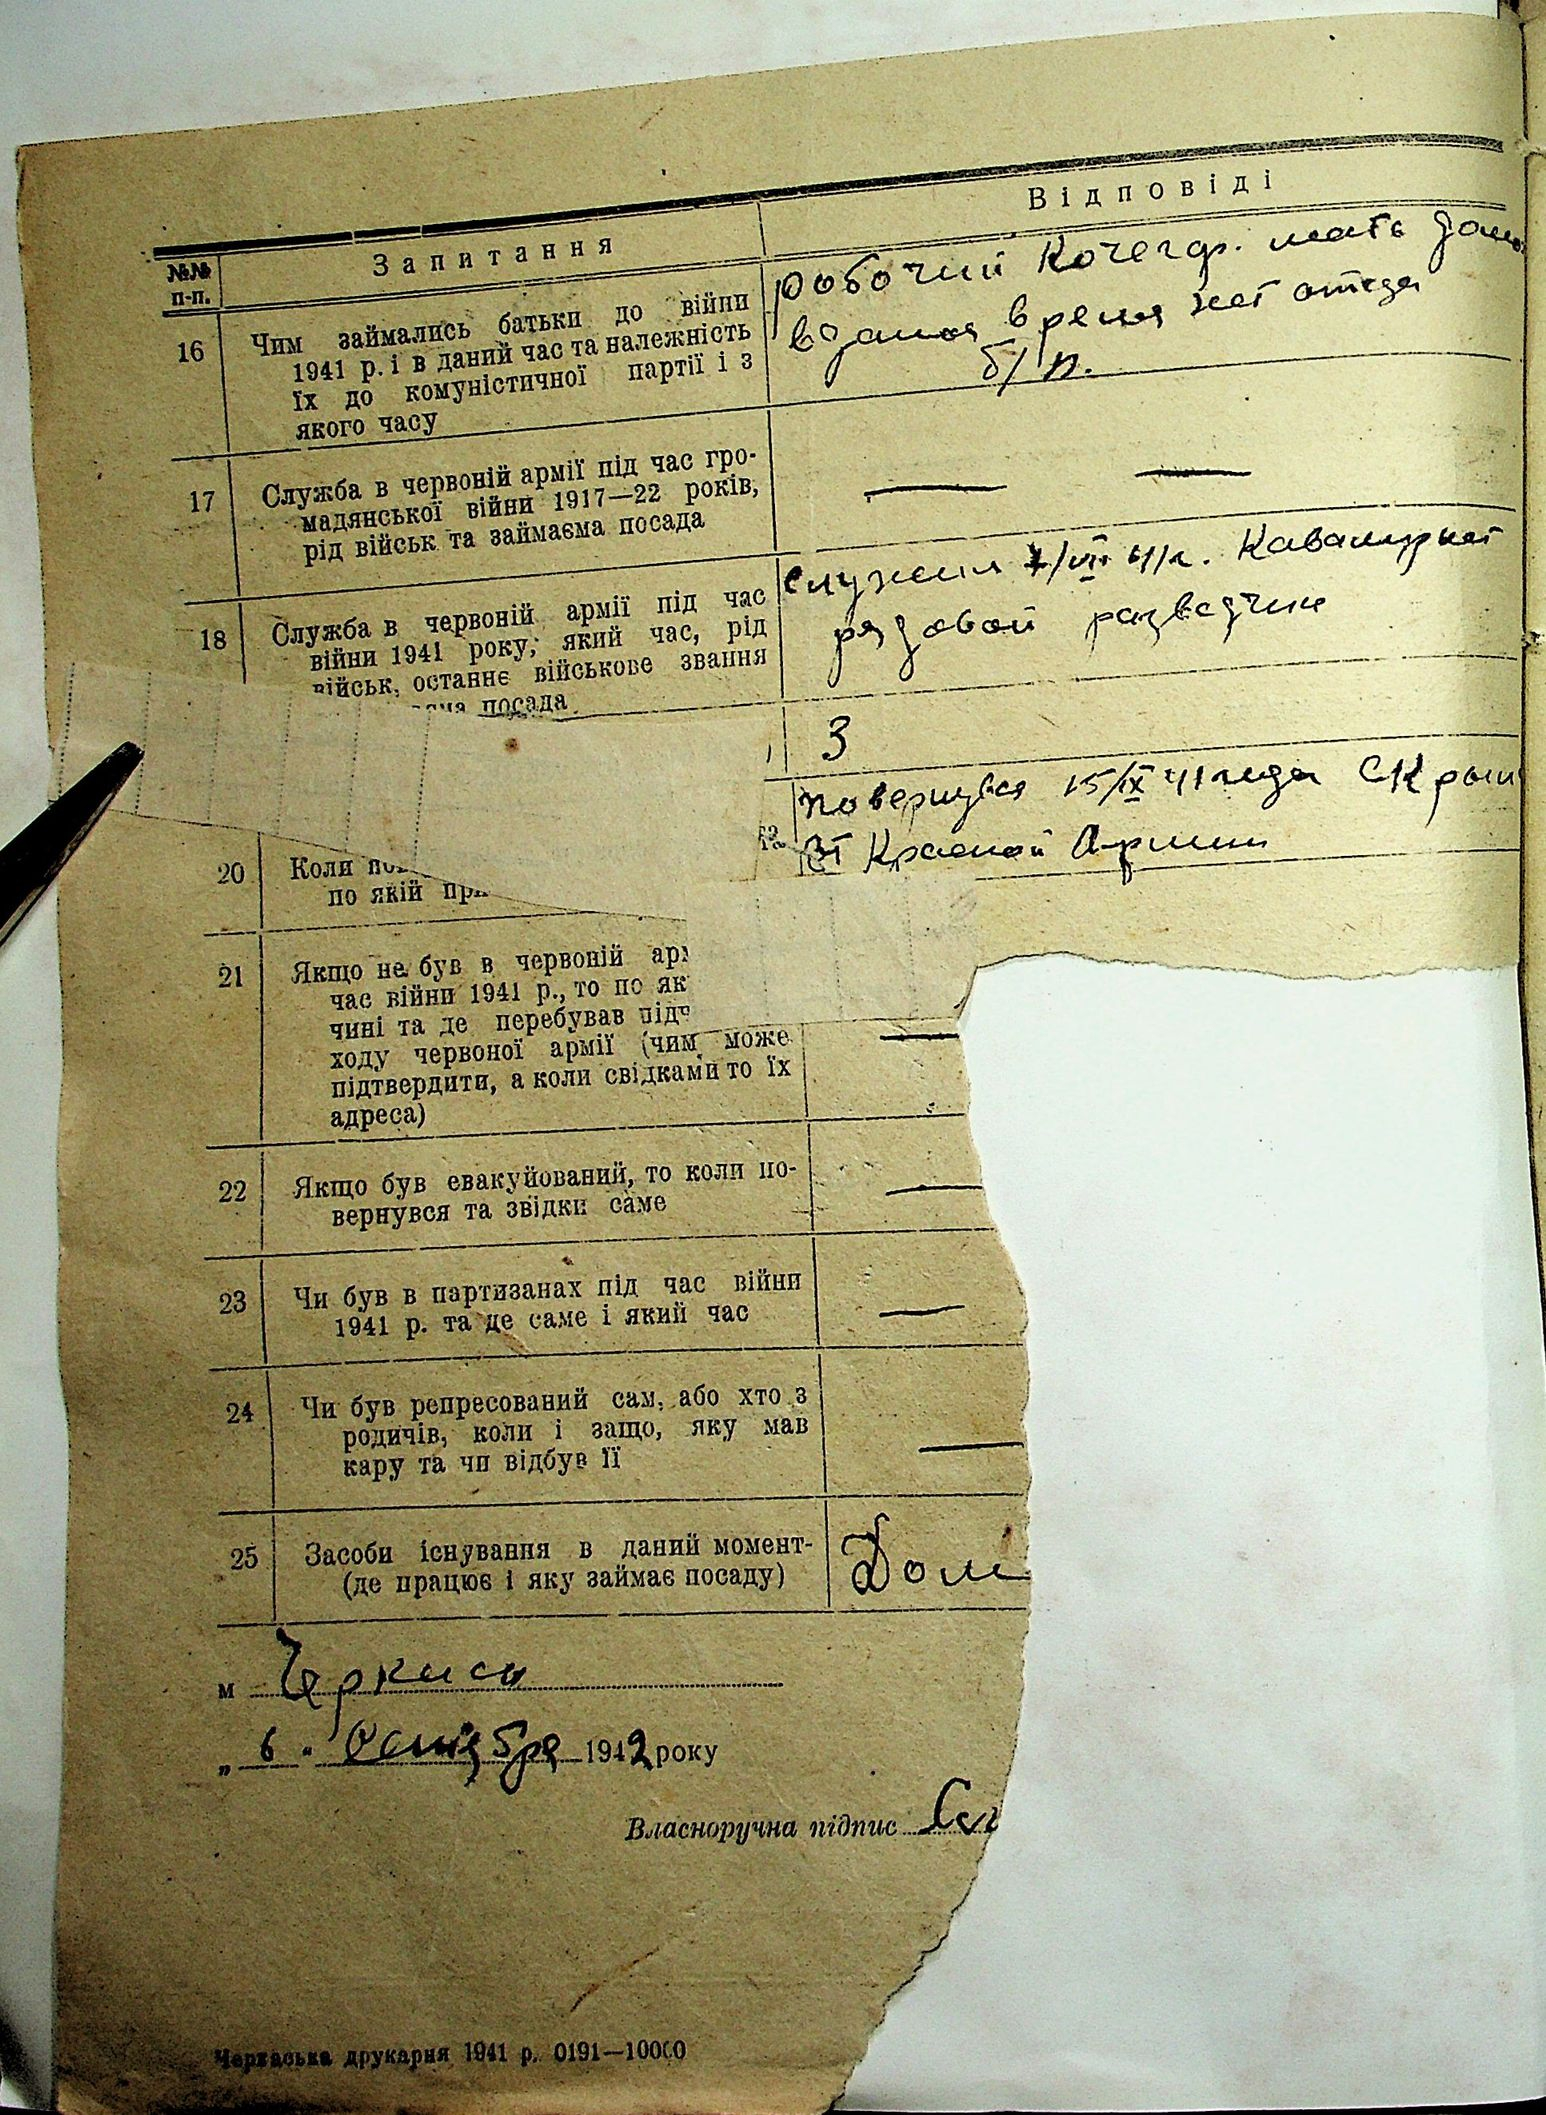 №№ п-п.
Запитання
Відповіді
16
Чим займались батьки до війни
1941 р. і в даний час та належність
їх до комуністичної партії і з
якого часу
робочий Кочегар. мать дом
в даное время нет отца
б/п.
17
Служба в червоній армії під час гро-
мадянської війни 1917—22 років,
рід військ та займаєма посада
18
Служба в червоній армії під час
війни 1941 року, який час, рід
військ, останнє військове звання
посада
Служил /VII 41 г.
рядовой разведчик
3
20
Коли
по якій
повернувся 15/IX 41 года с Крым
Красной Армии
21
Якщо не був в червоній
час війни 1941 р., то по як
чині та де перебував під
ходу червоної армії (чим може
підтвердити, а коли свідками то їх
адреса)
22
Якщо був евакуйований, то коли по-
вернувся та звідки саме
23
Чи був в партизанах під час війни
1941 р. та де саме і який час
24
Чи був репресований сам, або хто з
родичів, коли і защо, яку мав
кару та чи відбув її
25
Засоби існування в даний момент-
(де працює і яку займає посаду)
Дом
м Черкисы
„ 6 " Октября 1942 року
Власноручна підпис
Черкаська друкарня 1941 р. 0191—10000